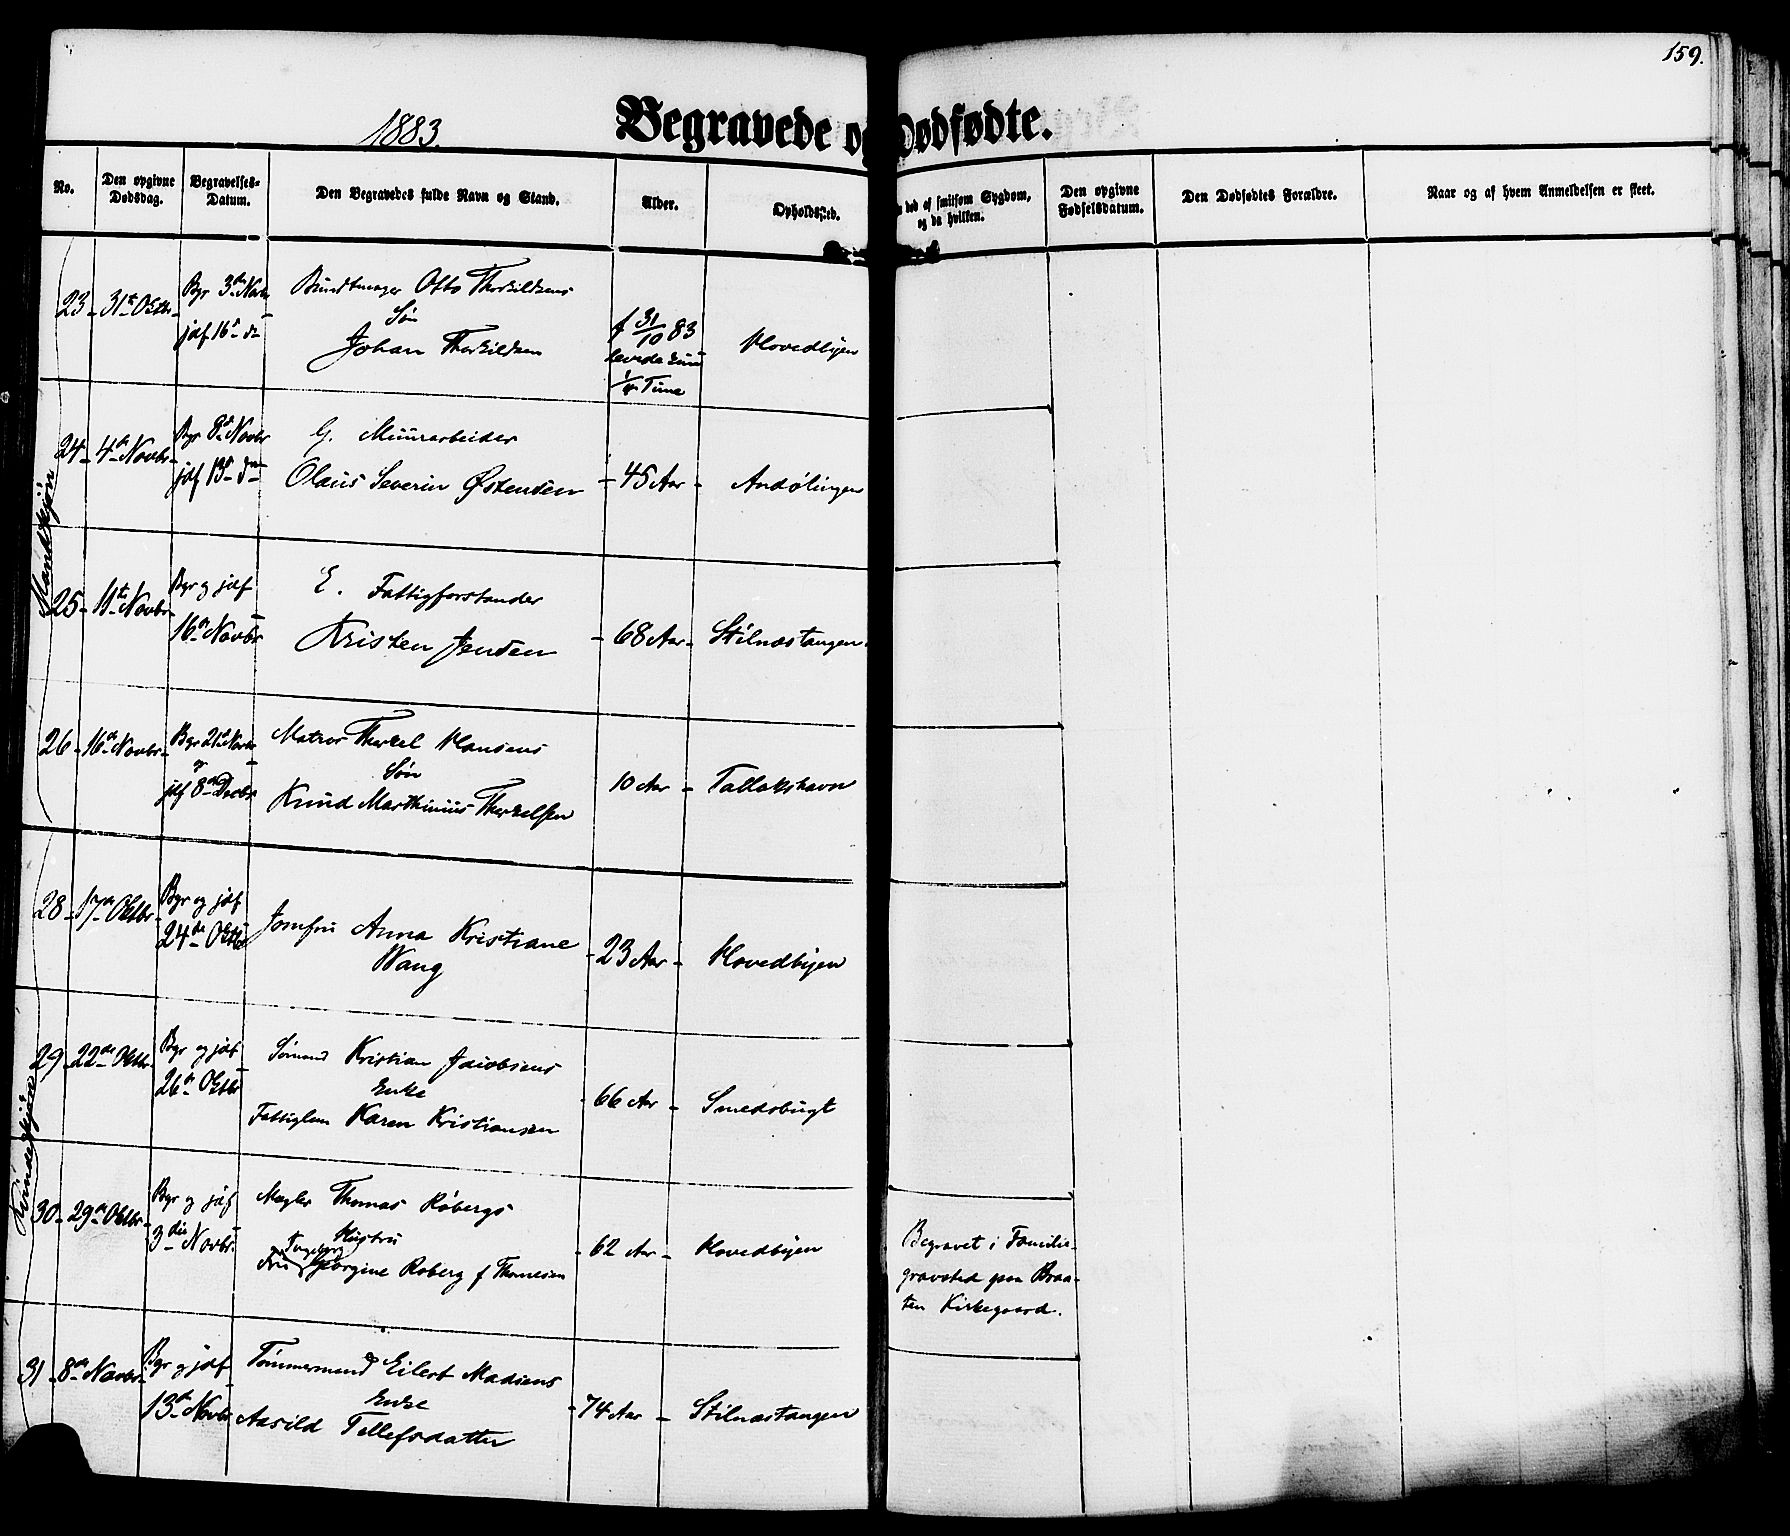 159.
1883.
Begravede og Dødfødte.
No.
Den opgivne Dødsdag.
Begravelses-Datum.
Den Begravedes fulde Navn og Stand.
Alder.
Opholdssted.
død af smitsom Sygdom, og da hvilken.
Den opgivne Fødselsdatum.
Den Dødfødtes Forældre.
Naar og af hvem Anmeldelsen er skeet.
Mandkjøn
23 - 31te Oktbr - Bgr 3die Novbr -
jdf 16de dn
Bundtmager Otto Therkildsens
Søn
Johan Therkildsen
f 31/10 83
levede kun
1/4 Time
Hovedbyen
24 - 4de Novbr - Bgr 8de Novbr
jdf 13de dn
G. Muurarbeider
Olaus Severin Østensen - 45 Aar - Andølingen
25 - 11te Novbr - Bgr og jdf
16de Novbr
E. Fattigforstander
Kristen Jensen - 68 Aar - Stilnæstangen
26 - 16de Novbr - Bgr 21de Novbr -
og
jdf 8de Decbr
Matros Therkel Hansens
Søn
Knud Marthinius Therkelsen
10 Aar - Tallakshavn
Kvindekjøn
28 - 17de Oktbr - Bgr og jdf
24de Oktbr
Jomfru Anna Kristiane
Wang
- 23 Aar - Hovedbyen
29 - 22de Oktbr - Bgr og jdf
26de Oktbr
Sømand Kristian Jacobsens
Enke
Fattiglem Karen Kristiansen
- 66 Aar - Smedsbugt
30 - 29de Oktbr - Bgr og jdf
3die Novbr
Mægler Thomas Robergs
Hustru
Ingeborg
Fru Georgine Roberg f Thomesen
- 62 Aar - Hovedbyen
Begravet i Familie-
gravsted paa Braa-
ten Kirkegaard.
31 - 8de Novbr - Bgr og jdf
13de Novbr
Tømmermand Eilert Madsens
Enke
Aasild Tellefsdatter
- 74 Aar - Stilnæstangen